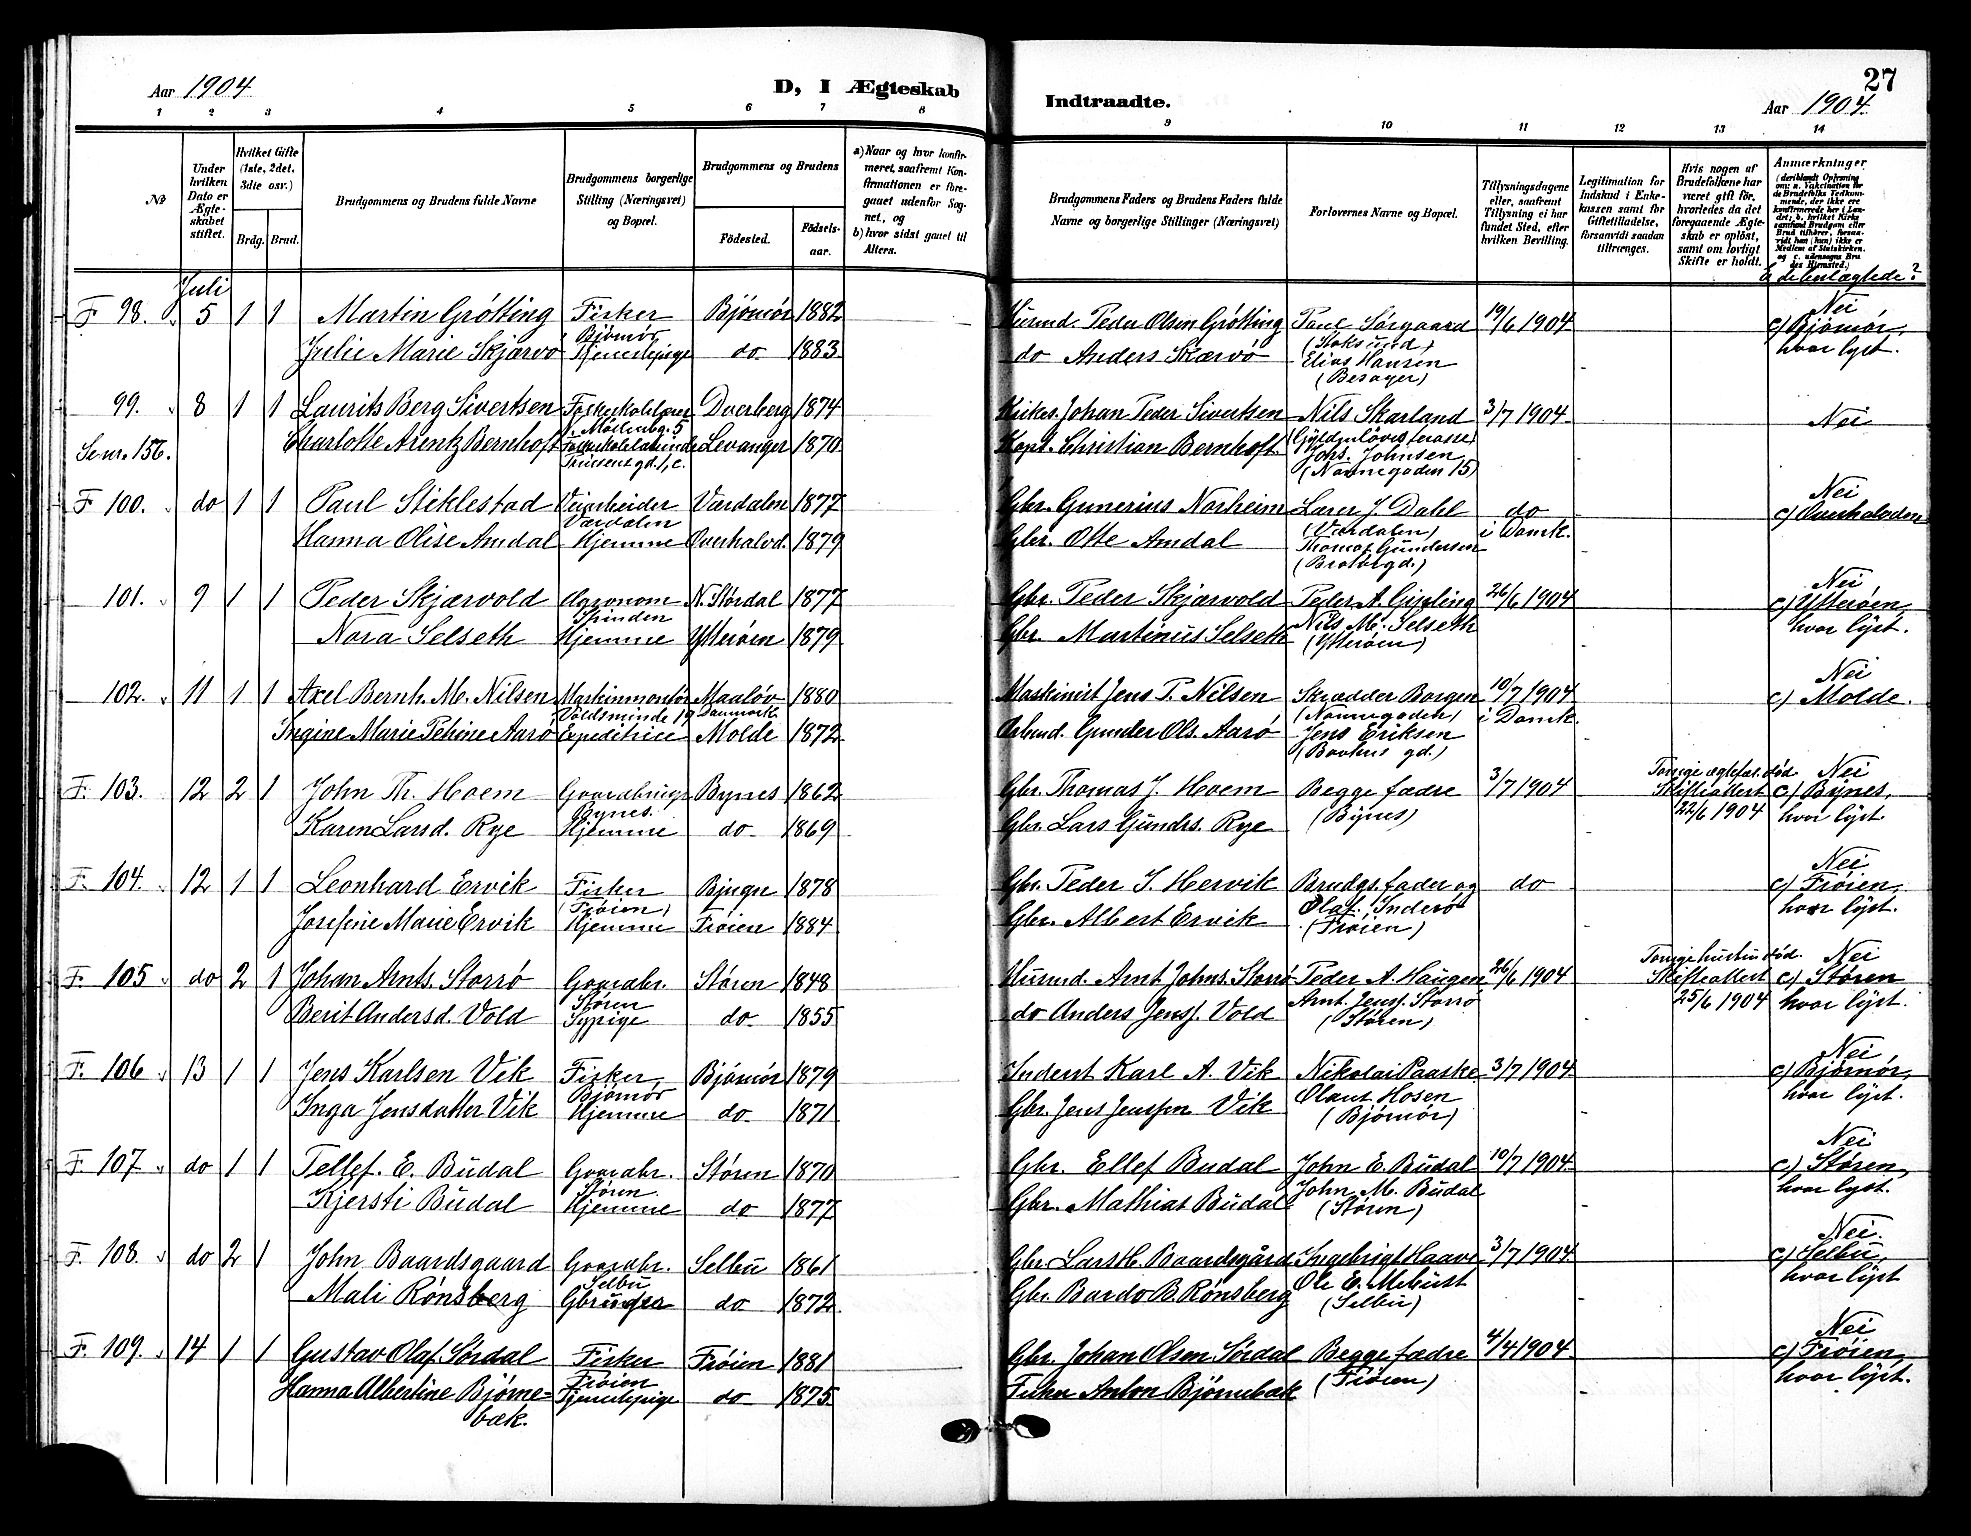 Aar 1904 D, I Ægteskab
Indtraadte. 27
Aar 1904.
1 2 3 4 5 6 7 8 9 10 11 12 13 14
No
Under hvilken Dato er Ægteskabet stiftet.
Hvilket Gifte (1ste, 2det, 3die osv.)
Brdg. Brud.
Brudgommens og Brudens fulde Navne
Brudgommens borgerlige Stilling (Næringsvei) og Bopæl.
Brudgommens og Brudens
Fødested. Fødsels-aar.
a) Naar og hvor konfirmeret, saafremt Konfirmationen er foregaaet udenfor Sognet, og
b) hvor sidst gaaet til Alters.
Brudgommens Faders og Brudens Faders fulde Navne og borgerlige Stillinger (Næringsvei)
Forlovernes Navne og Bopæl.
Tillysningsdagene eller, saafremt Tillysning ei har fundet Sted, efter hvilken Bevilling.
Legitimation for Indskud i Enkekassen samt for Giftetilladelse, forsaavidt saadan tiltrænges.
Hvis nogen af Brudefolkene har været gift før, hvorledes da det foregaaende Ægteskab er opløst, samt om lovligt Skifte er holdt.
Anmærkninger
Er de beslægtede?
Juli
F 98. 5 1 1 Martin Grötting Fisker Bjömör 1882 Husmd. Peder Olsen Grötting Paul Sørgaard 19/6 1904 Nei
Bjømør (Stoksund) c) Bjømør,
Julie Marie Skjærvö Tjenestepige do 1883 do Anders Skærvö Elias Hansen hvor lyst.
(Besager)
99. 8 1 1 Laurits Berg Sivertsen Folkeskolelærer Dverberg 1874 Kirkes. Johan Peder Sivertsen Nils Skarland 3/7 1904 Nei
Møllenbg. 5 (Gyldenløves terasse)
Se nr. 156. Charlotte Arentz Bernhoft Folkeskolelærerinde Levanger 1870 Kapt. Christian Bernhoft. Johs. Johnsen
(Nonnegaden 15)
F 100. do 1 1 Paul Stiklestad Veiarbeider Værdalen 1877 Gbr. Gunerius Norheim Lærer J. Dahl do Nei
Værdalen (Værdalen) i Domk. c) Overhalvden
Hanna Olise Amdal Hjemme Overhalvd. 1879 Gbr. Otte Amdal Thomas Gundersen
101. 9 1 1 Peder Skjærvold Agronom N. Stördal 1877 Gbr. Peder Skjærvold Peder A. Gipling 26/6 1904 Nei
Nils M. Selseth c) Ytterøen,
Nora Selseth Hjemme Ytterøen 1879 Gbr. Martinus Selseth (Ytterøen) hvor lyst.
102. 11 1 1 Axel Bernh. M. Nilsen Maskinmontör Maalöv 1880 Maskinist Jens P. Nilsen Skrædder Borgen 10/7 1904 Nei
Voldsminde 19 Danmark (Nonnegaden) i Domk. c) Molde.
Ingine Marie Petrine Aarö Expeditrice Molde 1872 Gunder Ols. Aarö Jens Eriksen
103. 12 2 1 John Th. Hoem Gaardbruger Bynes 1862 Gbr. Thomas J. Hoem Begge fædre 3/7 1904 Forrige ægtefæl. död. Nei
Bynes. (Bynes) Skifteattest c) Bynes,
Karen Larsd. Rye Hjemme do 1869 Gbr. Lars Gundrs. Rye 22/6 1904 hvor lyst.
F. 104. 12 1 1 Leonhard Ervik Fisker Bjugn 1878 Gbr. Peder S. Hervik Brudgs. fader og do Nei
(Frøien) Olaf. Inderö c) Frøien,
Josefine Marie Ervik Hjemme Frøien 1884 Gbr. Albert Ervik (Frøien) hvor lyst.
F. 105 do 2 1 Johan Arnts. Storrö Gaardbr. Støren 1848 Husmd. Arnt Johns. Storrö Peder A. Haugen 26/6 1904 Forrige hustru död. Nei
Støren Arnt. Jensf. Storrö Skifteattest c) Støren
Berit Andersd. Vold Sypige do 1855 do Anders Jensf. Vold (Støren) 25/6 1904 hvor lyst.
F. 106 13 1 1 Jens Karlsen Vik Fisker Bjömör 1879 Inderst Karl A. Vik Nikolai Paaske 3/7 1904 Nei
Bjømør Olaus Hosen c) Bjømør,
Inga Jensdatter Vik Hjemme do 1871 Gbr. Jens Jenssen Vik (Bjømør) hvor lyst.
F. 107 do 1 1 Tellef. E. Budal Gaardbr. Støren 1870 Gbr. Ellef Budal John E. Budal 10/7 1904 Nei
Støren John M. Budal c.) Støren,
Kjersti Budal Hjemme do 1877 Gbr. Mathias Budal (Støren) hvor lyst.
F. 108. do 2 1 John Baardsgaard Gaardbr. Selbu 1861 Gbr. Lars H. Baardsgård Ingebrigt Haave 3/7 1904 Nei.
Selbu Ole E. Mebust c) Selbu,
Mali Rønsberg Gbruger do 1872 Gbr. Bardo B. Rønsberg (Selbu) hvor lyst
F. 109. 14 1 1 Gustav Olaf Sördal Fisker Frøien 1881 Gbr. Johan Olsen Sördal Begge fædre 4/4 1904 Nei
Frøien (Frøien) c) Frøien,
Hanna Albertine Bjørne= Tjenestepige do 1875 Fisker Anton Bjørnebæk hvor lyst.
bæk.